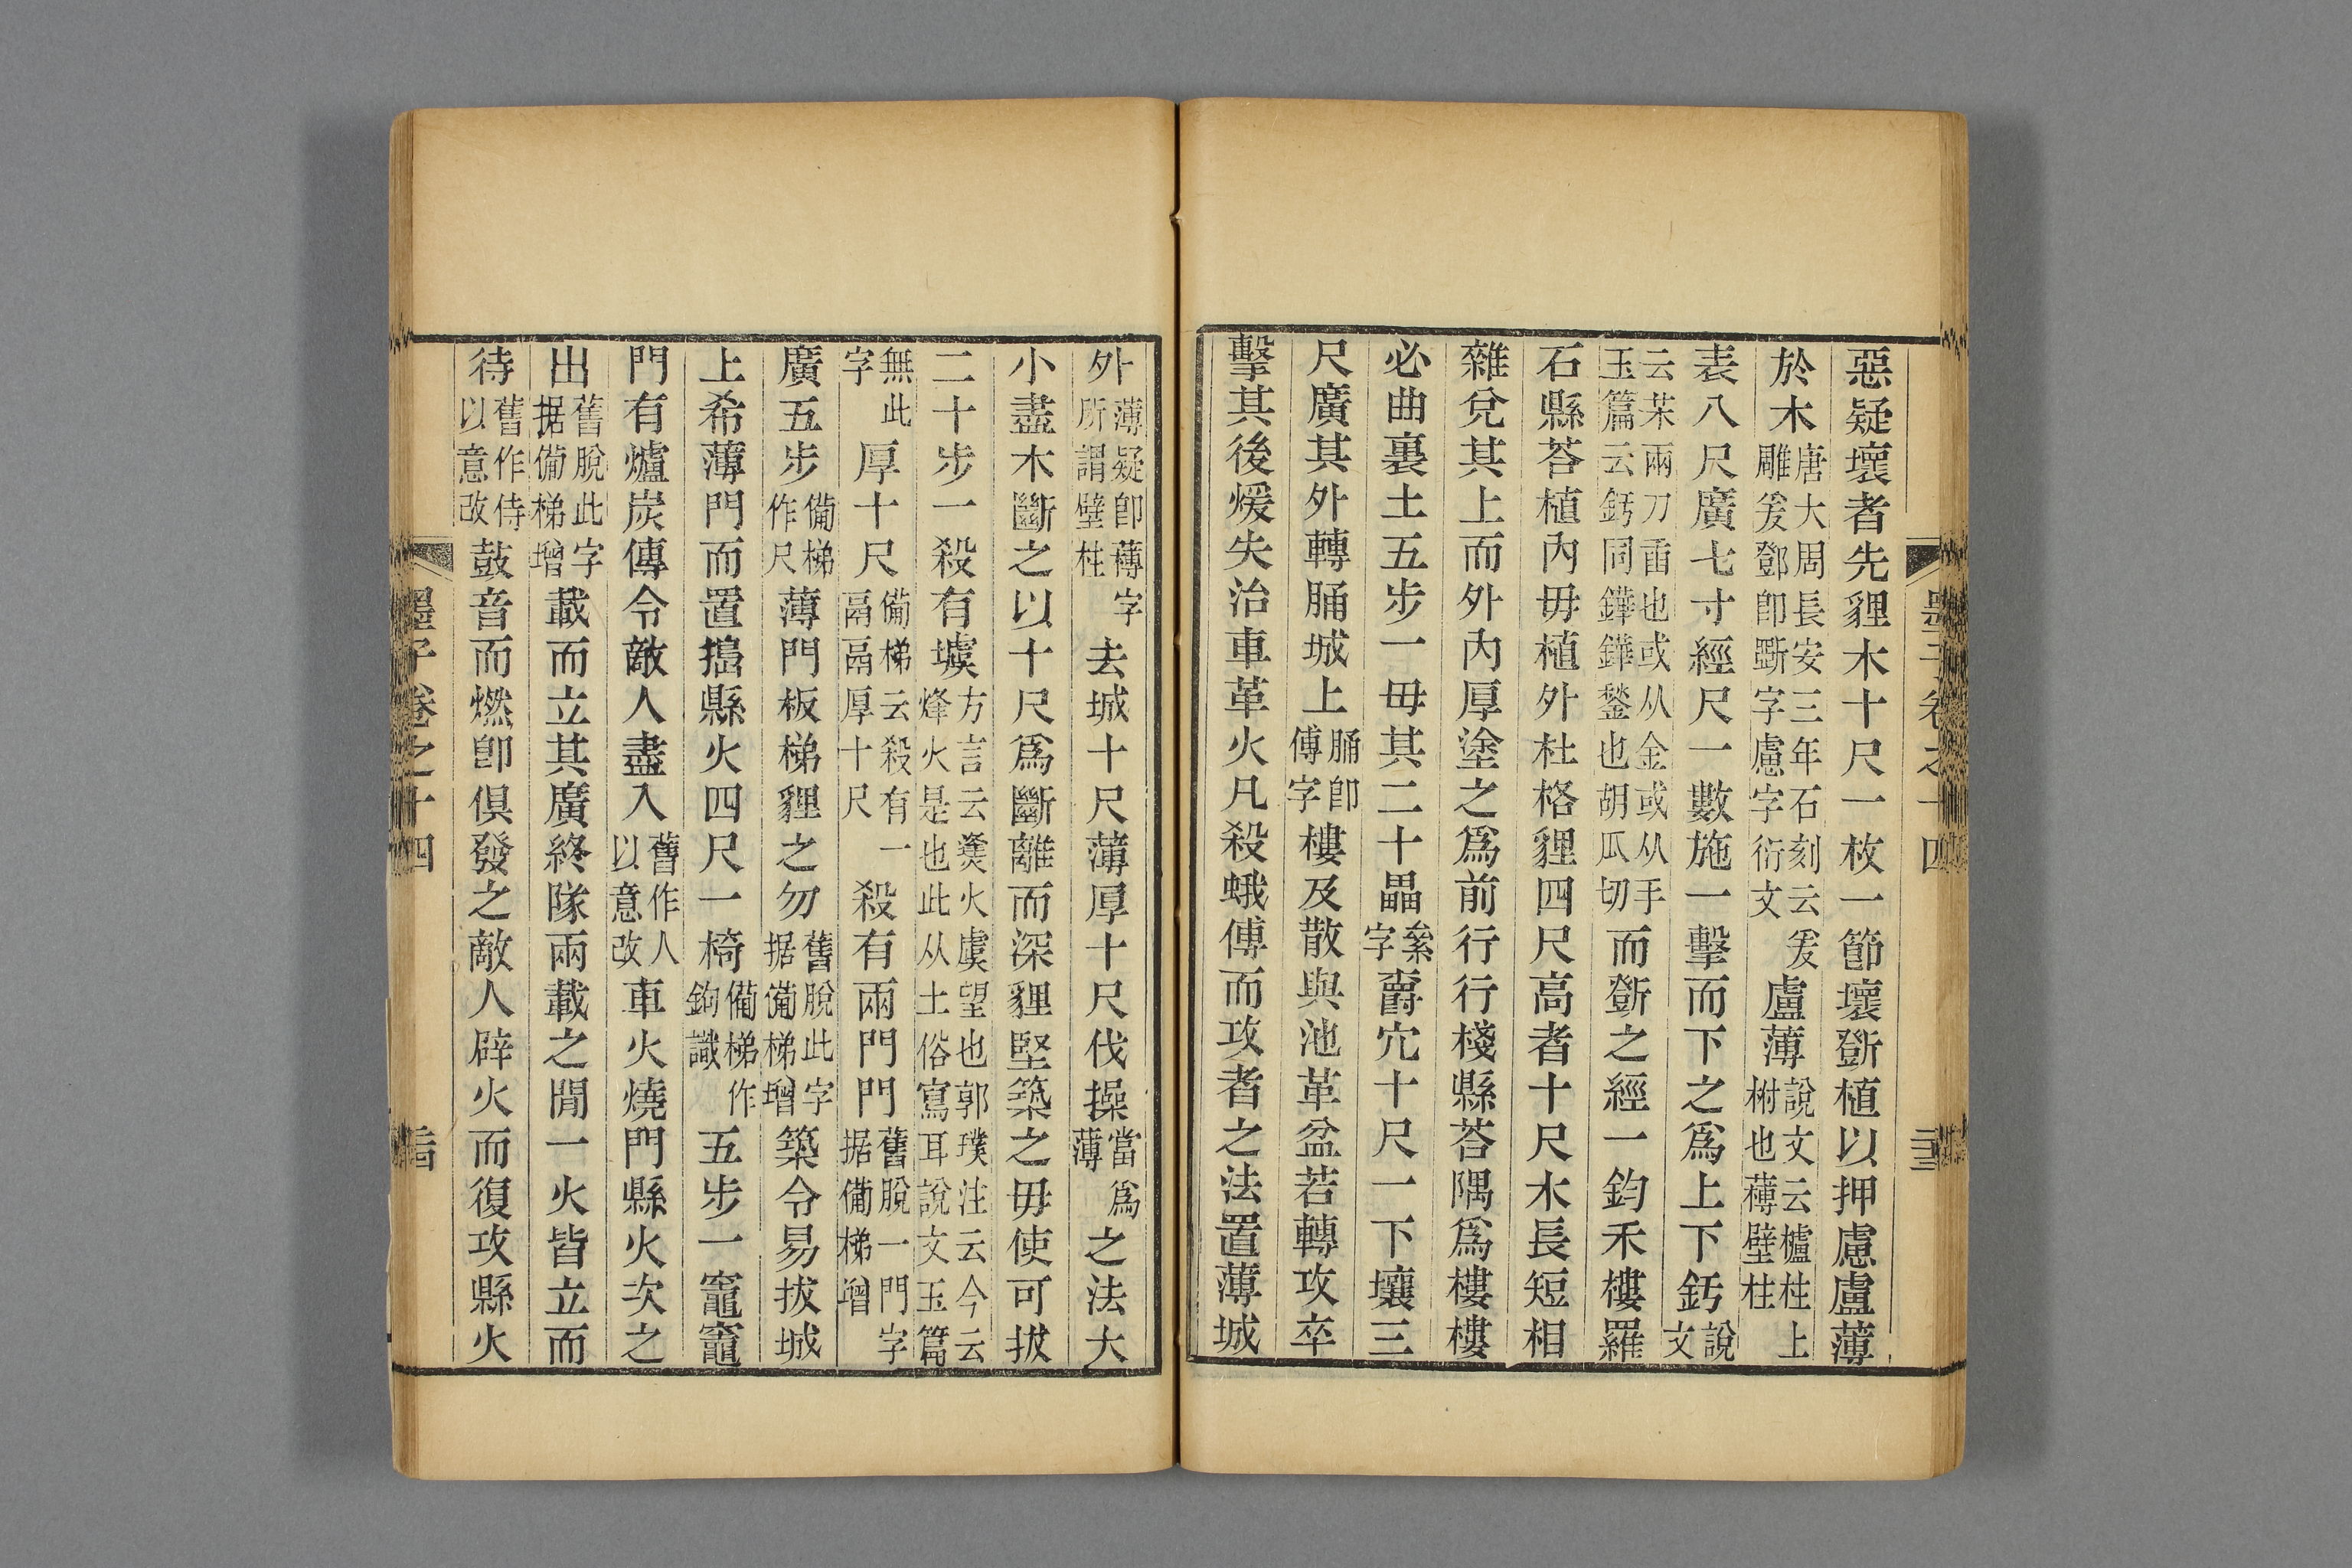 惡疑壞者先貍木十尺一枚一節壞斵植以押慮盧薄
於木唐大周長安三年石刻云爰雕爰鄧卽斵字慮字衍文盧薄說文云櫨柱上柎也欂壁柱
表八尺廣七寸經尺一數施一擊而下之爲上下釫說文
云茮兩刀臿也或从金或从手玉篇云釫同鏵鏵鍫也胡瓜切而斵之經一鈞禾樓羅
石縣荅植內毋植外杜格貍四尺高者十尺木長短相
雜兌其上而外內厚塗之爲前行行棧縣荅隅爲樓樓
必曲裏土五步一毋其二十畾絫字爵穴十尺一下壤三
尺廣其外轉腯城上腯卽傅字樓及散與池革盆若轉攻卒
擊其後煖失治車革火凡殺蛾傅而攻者之法置薄城
墨子卷之十四
外薄疑卽欂字所謂壁柱去城十尺薄厚十尺伐操當爲薄之法大
小盡木斷之以十尺爲斷離而深貍堅築之毋使可拔
二十步一殺有㙈方言云㷭火虞望也郭璞注云今云烽火是也此从土俗寫耳說文玉篇
無此字厚十尺備梯云殺有一鬲鬲厚十尺殺有兩門門舊脫一門字据備梯增
廣五步備梯作尺薄門板梯貍之勿舊脫此字据備梯增築令易拔城
上希薄門而置搗縣火四尺一椅備梯作鉤識五步一竈竈
門有爐炭傳令敵人盡入舊作人以意改車火燒門縣火次之
出舊脫此字据備梯增載而立其廣終隊兩載之閒一火皆立而
待舊作侍以意改鼓音而燃卽俱發之敵人辟火而復攻縣火
墨子卷之十四